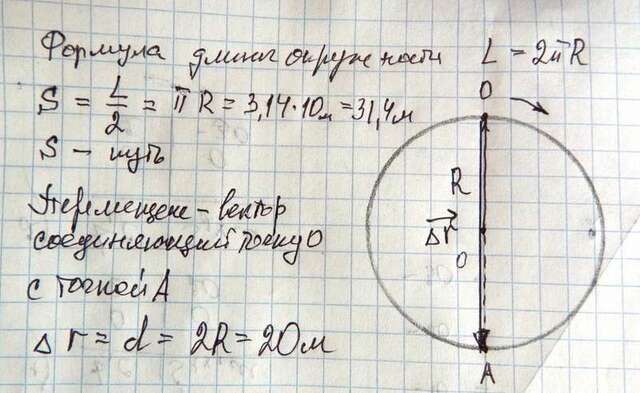 Формула длины окружности L = 2πR
S = L/2 = πR = 3,14·10м = 31,4м
S – путь
Перемещение – вектор
соединяющий точку О
с точкой А
Δr = d = 2R = 20м
O
R
Δr
O
A